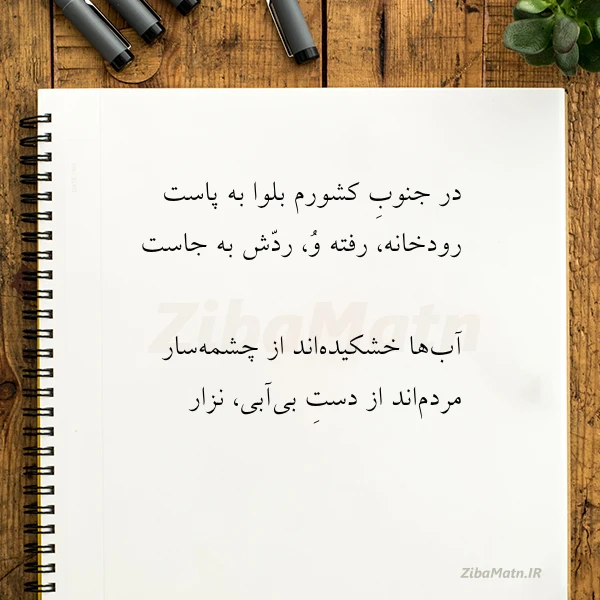 در جنوبِ کشورم بلوا به پاست
رودخانه، رفته وُ، ردّش به جاست
ZibaMatn
آب‌ها خشکیده‌اند از چشمه‌سار
مردم‌اند از دستِ بی‌آبی، نزار
ZibaMatn.IR